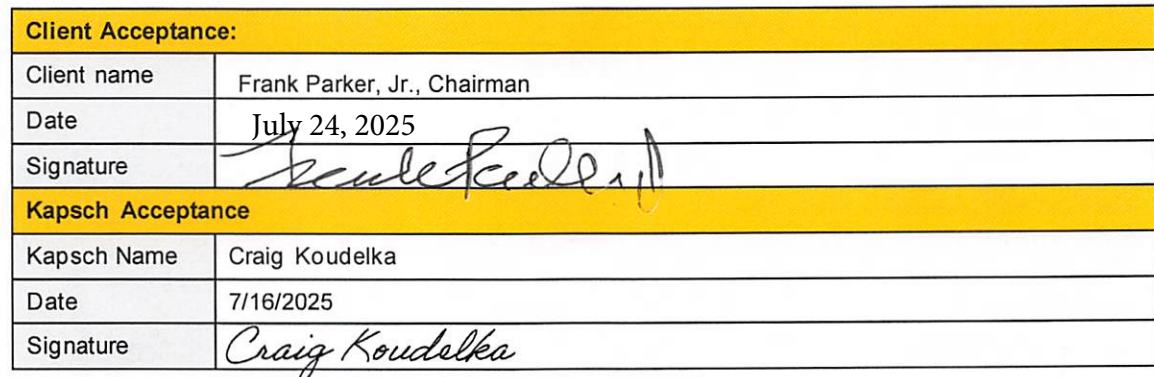 Client Acceptance:
Client name Frank Parker, Jr., Chairman
Date July 24, 2025
Signature
Kapsch Acceptance
Kapsch Name Craig Koudelka
Date 7/16/2025
Signature Craig Koudelka